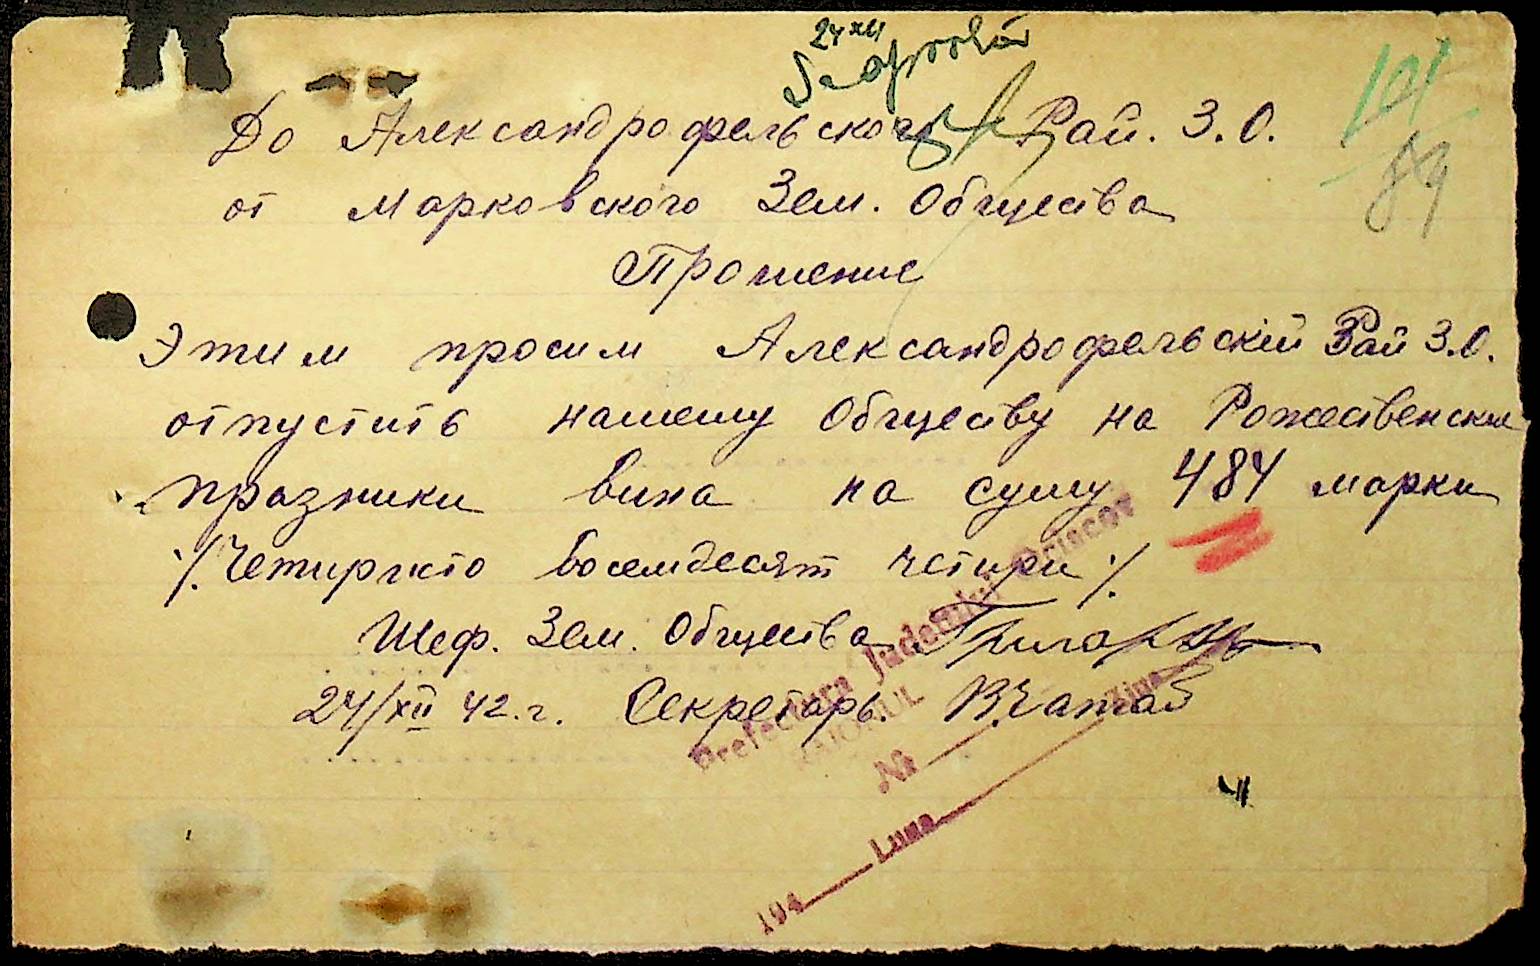 24 XII
101
89
До Александрофельского Рай. З.О.
от Марковского Зем. Общества
Прошение
Этим просим Александрофельскій Рай З.О.
отпустить нашему Обществу на Рожественские
празники вина на суму 484 марки
/Четириста восемдесят четири/
Шеф. Зем. Общества
24/XII 42.г. Секретарь.
Prefectura Judetului Oriacov
RAIONUL
№
194 Luna Ziua